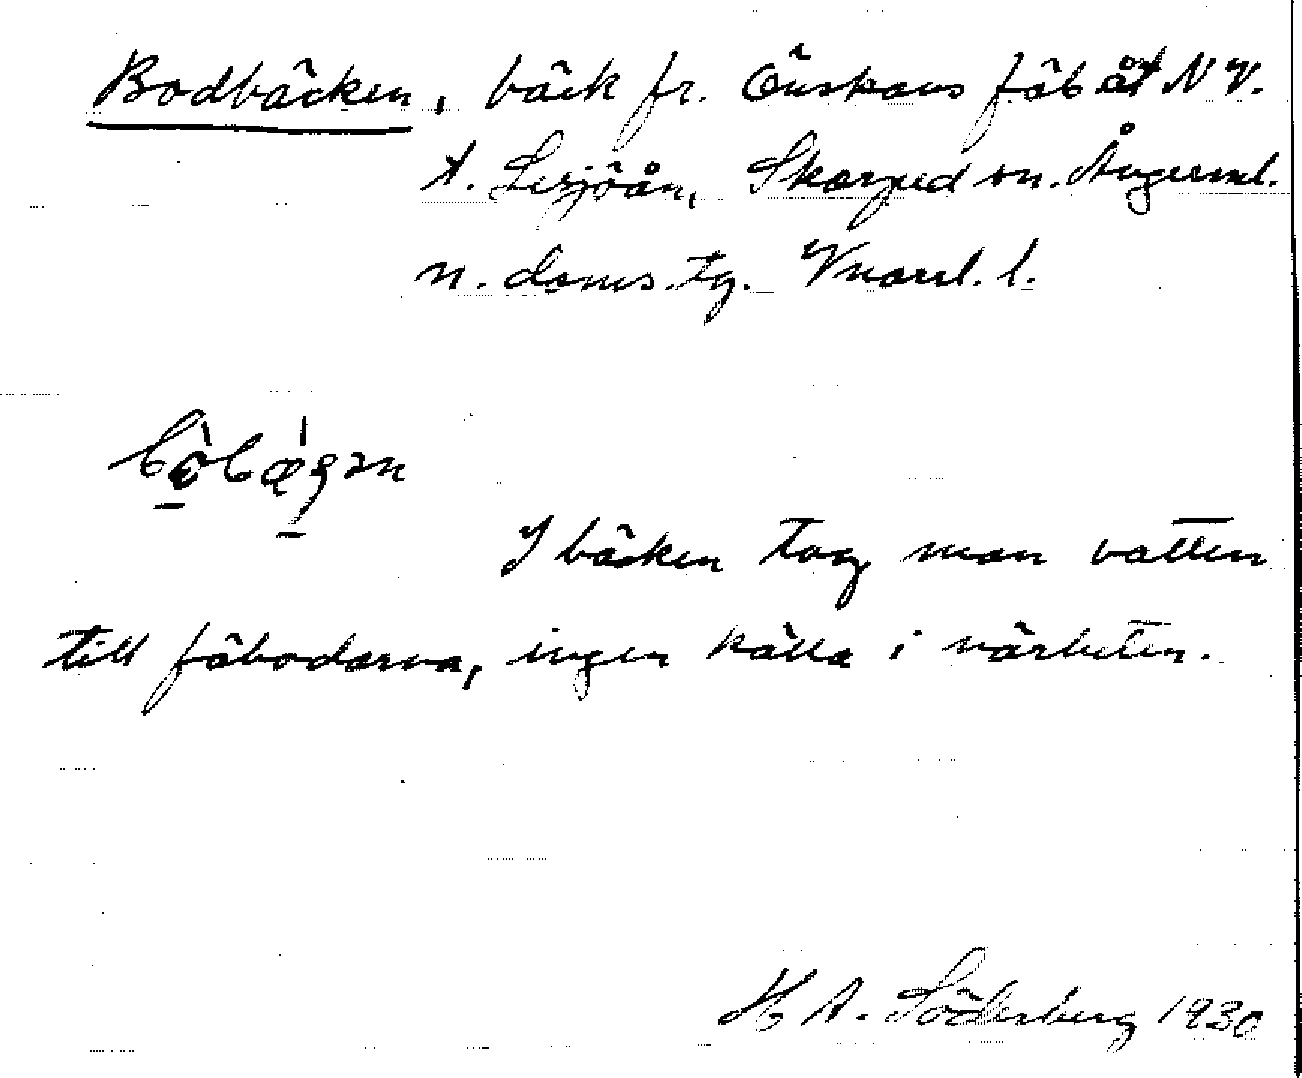 Bodbäcken, bäck fr. Önskans fäb åt N V.
t. Lesjöån, Skorped sn. Ångerml.
n. doms. tg. Vnorrl. l.
I bäcken tog man vatten
till fäbodarna, ingen källa i närheten.
H A. Söderberg 1930